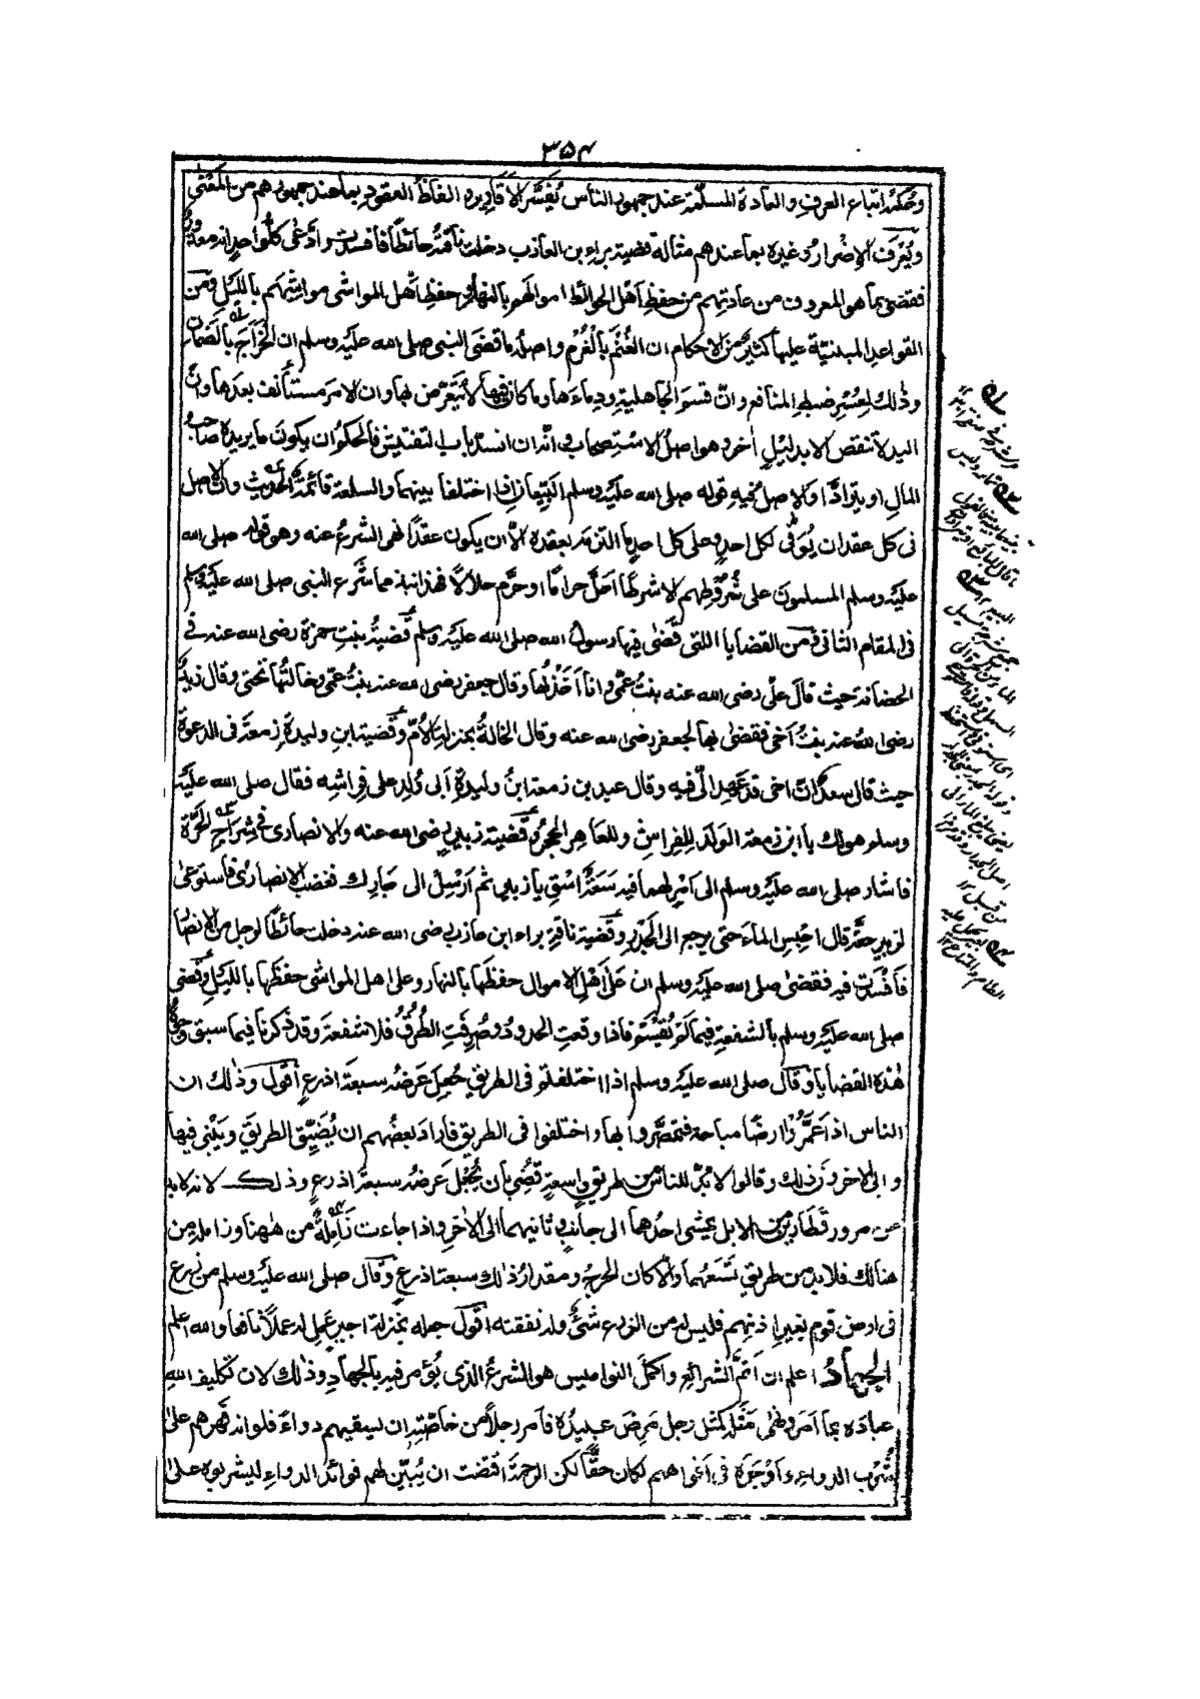 ٣٥٤
وحكمه اتباع العرف والعادة المسلمة عند جمهور الناس يُفَسَّر الأقارير والفاظ العقود بما عند جمهورهم من المعنى
ويُعْرَف الإضرار وغيره بما عندهم مثاله قضية براء بن العازب دخلت ناقتُه حائطاً فأفسدت وادّعى كل واحد انه معذور
فقضى بما هو المعروف من عادتهم من حفظ أهل الحوائط اموالهم بالنهار وحفظ أهل المواشى مواشيهم بالليل ومن
القواعد المبنيّة عليها كثيرٌ من الاحكام ان الغُنم بالغُرْم واصله ما قضى النبى صلى الله عليه وسلم ان الخَرَاجَ بالضمان
وذٰلك لِعُسْرِ ضبط المنافع وانّ قسم الجاهلية ودماءَها وما كان فيها لا يُتَعرّض بها وان الامر مستأنف بعدها وانّ
اليد لا تنقض الا بدليل اٰخر وهو اصلُ الاستصحاب وانّه ان انسد باب التفتيش فالحكم ان يكون ما يريدهُ صاحب
المال او يترادّا والاصل فيه قوله صلى الله عليه وسلم البَيِّعان اذا اختلفا بينهما والسلعة قائمة الحديث وان الاصل
فى كل عقد ان يُوَفّٰى لكل احد وعلى كل احد ما التزمه بعقده الا ان يكون عقداً نهى الشرع عنه وهو قوله صلى الله
عليه وسلم المسلمون على شُرُوطهم الا شرطا احلّ حراما او حرّم حلالا فهذا نبذ مما شرع النبى صلى الله عليه وسلم
فى المقام الثانى ومن القضايا اللتى قضٰى فيها رسول الله صلى الله عليه وسلم قضيةُ بنتِ حمزة رضى الله عنه فى
الحضانة حيث قال علّى رضى الله عنه بنتُ عمّى وانا اَخَذْتُها وقال جعفر رضى الله عنه بنتُ عمّى وخالتُها تحتى وقال زيدٌ
رضى اللهُ عنه بنتُ اَخى فقضٰى بها لجعفر رضى الله عنه وقال الخالةُ بمنزلة الأمّ وقضية ابن وليدةِ زمعة فى الدعوة
حيث قال سعدٌ انّ اخى قد عَهِد اِلىّ فيه وقال عبد بن زمعة ابنُ وليدةِ اَبى وُلِد على فِراشِه فقال صلى الله عليه
وسلم هولك يا ابن زمعة الوَلَد لِلفِراشِ وللعاهر الحجر وقضية زبير رضى الله عنه والانصارى فى شِراج الحَرَّة
فاشار صلى الله عليه وسلم الى اَمْرٍ لهما فيه سَعَةٌ اَسْقِ يا زبير ثم اَرْسِلْ الى جارك فغضب الانصارىُ فاستوعى
لزبير حقَّه قال احبِسِ الماءَ حتى يرجع الى الجَدْر وقضية ناقةِ براء ابن عازب رضى الله عنه دخلت حائطًا لرجل من الانصار
فأفسَدَت فيه فقضٰى صلى الله عليه وسلم ان على أهل الاموال حفظَها بالنهار وعلى اهل المواشى حفظَها بالليل وقضى
صلى الله عليه وسلم بالشفعةِ فيما لم يُقْسَم فاذا وقعتِ الحدودُ وصُرِفَتِ الطُرُقُ فلا شفعة وقد ذكرنا فيما سبق وجوه
هٰذه القضايا وقال صلى الله عليه وسلم اذا اختلفتم فى الطريق جُعِلَ عَرضُه سبعةَ اذرع أقول وذٰلك ان
الناس اذا عَمَّرُوْا ارضًا مباحة فتمصّروا بها واختلفوا فى الطريق فاراد بعضُهم ان يُضَيِّق الطريقَ ويَبْنى فيها
وابى الاخرون ذٰلك وقالوا لا بُدّ للناس من طريق واسعةٍ قُضِى بأن يُجْعَلَ عَرضُه سبعةَ اذرعٍ وذٰلك لانه لابد
من مرور قطارين من الابل يمشى احدُهما الى جانب وثانيهما الى الاٰخر واذا جاءت زَامِلَةٌ من هٰهنا وزاملة من
هنالك فلابد من طريق تَسَعُهما والّا كان الحرجُ ومقدارُ ذٰلك سبعة اذرع وقال صلى الله عليه وسلم من زرع
فى ارض قوم بغير اِذنهم فليس له من الزرع شئٌ وله نفقته اقول جعله بمنزلة اجير عَمِل له عملًا نافعا والله اعلم
الجِهادُ اعلم ان اَتمَّ الشرائع واكملَ النواميس هو الشرعُ الذى يُؤمر فيه بالجهاد وذٰلك لان تكليف اللهِ
عبادَه بما اَمَر ونهٰى مَثَلُه كمثل رجل مَرِضَ عبيدُه فأمر رجلًا من خاصّته ان يسقيهم دواءً فلو انه قَهَرهم علىٰ
شُرْبِ الدواء واَوْجَرَه فى اَفْواههم لكان حقًّا لكن الرحمة اقتضت ان يُبيّن لهم فوائد الدواء ليشربوه علىٰ